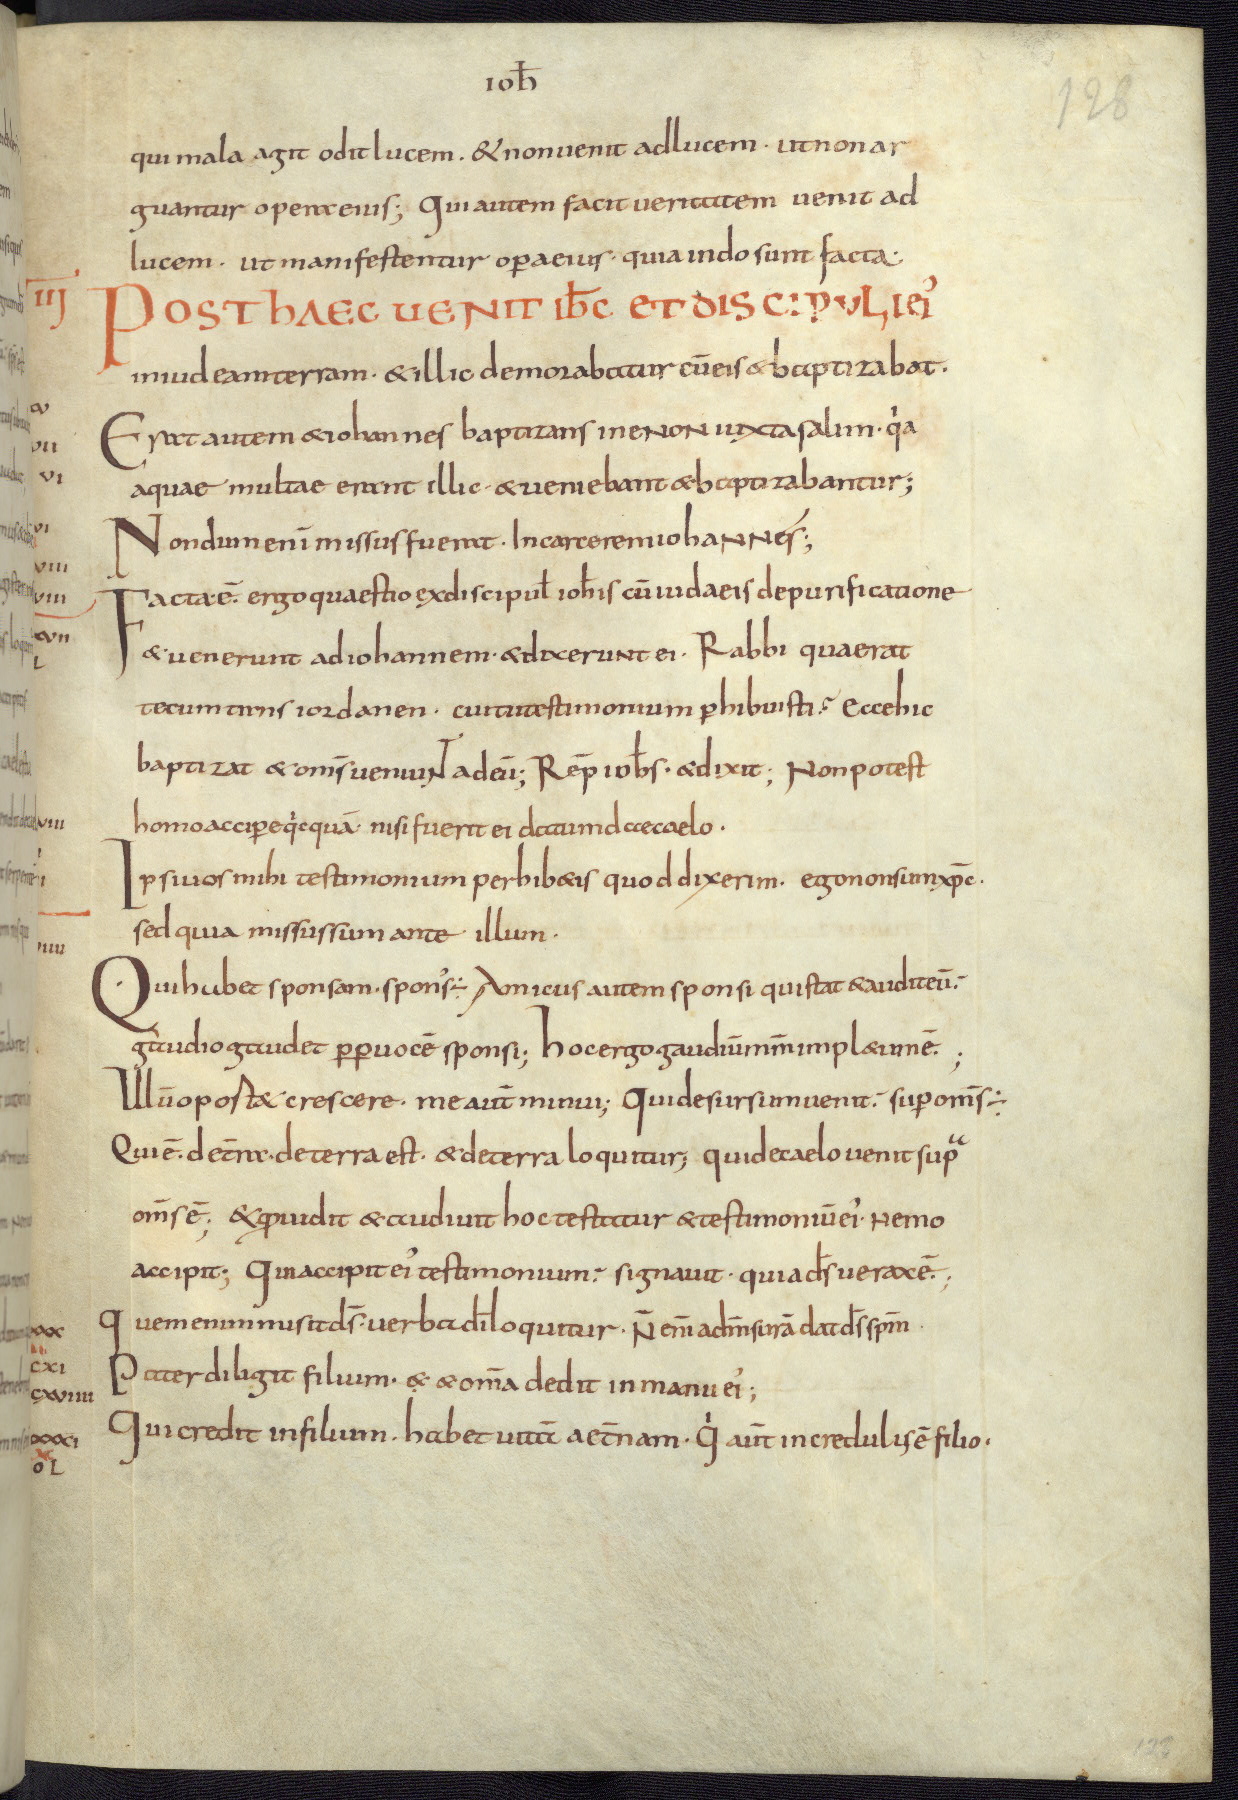 ioħ
128
qui mala agit odit lucem. & non uenit ad lucem. ut non ar
guantur opera eius; Qui autem facit ueritatem uenit ad
lucem. ut manifestentur opera eius. quia in do sunt facta.
III POST HAEC UENIT IHC ET DISCIPULI EI'
in iudeam terram. & illic demorabatur cū eis & baptizabat.
Erat autem & iohannes baptizans in enon iuxta salim. qia
aquae multae erant illic. & ueniebant & baptizabantur;
Nondum enī missus fuerat. In carcerem iohannes;
Facta ē. ergo quaestio ex discipul ioħis cū iudaeis de purificatione
& uenerunt ad iohannem. & dixerunt ei. Rabbi qui aerat
tecum trans iordanen. cui tu testimonium phibuisti. Ecce hic
baptizat & oms̄ ueniunt ad eū; Resp̄ iohs. & dixit; Non potest
homo accipe qicquā nisi fuerit ei datum de caelo.
Ipsi uos mihi testimonium perhib&is quod dixerim. ego non sum xp̄c.
sed quia missus sum ante illum.
Qui habet sponsam. spons' ÷ Amicus autem sponsi qui stat & audit eū.
gaudio gaudet pp uocē sponsi; hoc ergo gaudiū mm̄ impl&um ē. ;
Illū oport& crescere. me aut̄ minui; Qui desursum uenit. sup oms̄ ÷
Qui ē. de t̄ra. de terra est. & de terra loquitur; qui de caelo uenit supa
oms̄ ē; & q uidit & audiuit hoc testatur & testimoniū ei'. Nemo
accipit; Qui accipit ei' testimonium. signauit. quia ds̄ uerax ē. ;
Quem enim misit ds̄. uerba di loquitur. N̄ enī ad msurā dat ds̄ sp̄m.
Pater diligit filium. & & om̄a dedit in manu ei';
Qui credit in filium. habet uitā aet̄nam. Qi aut̄ incredulus ē filio.